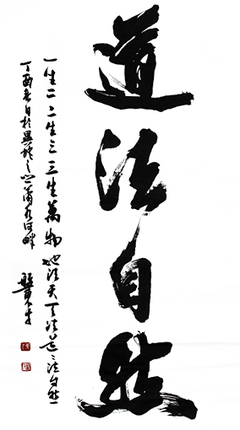 道法自然
一生二二生三三生萬物地法天〻法道〻法自然
丁酉春